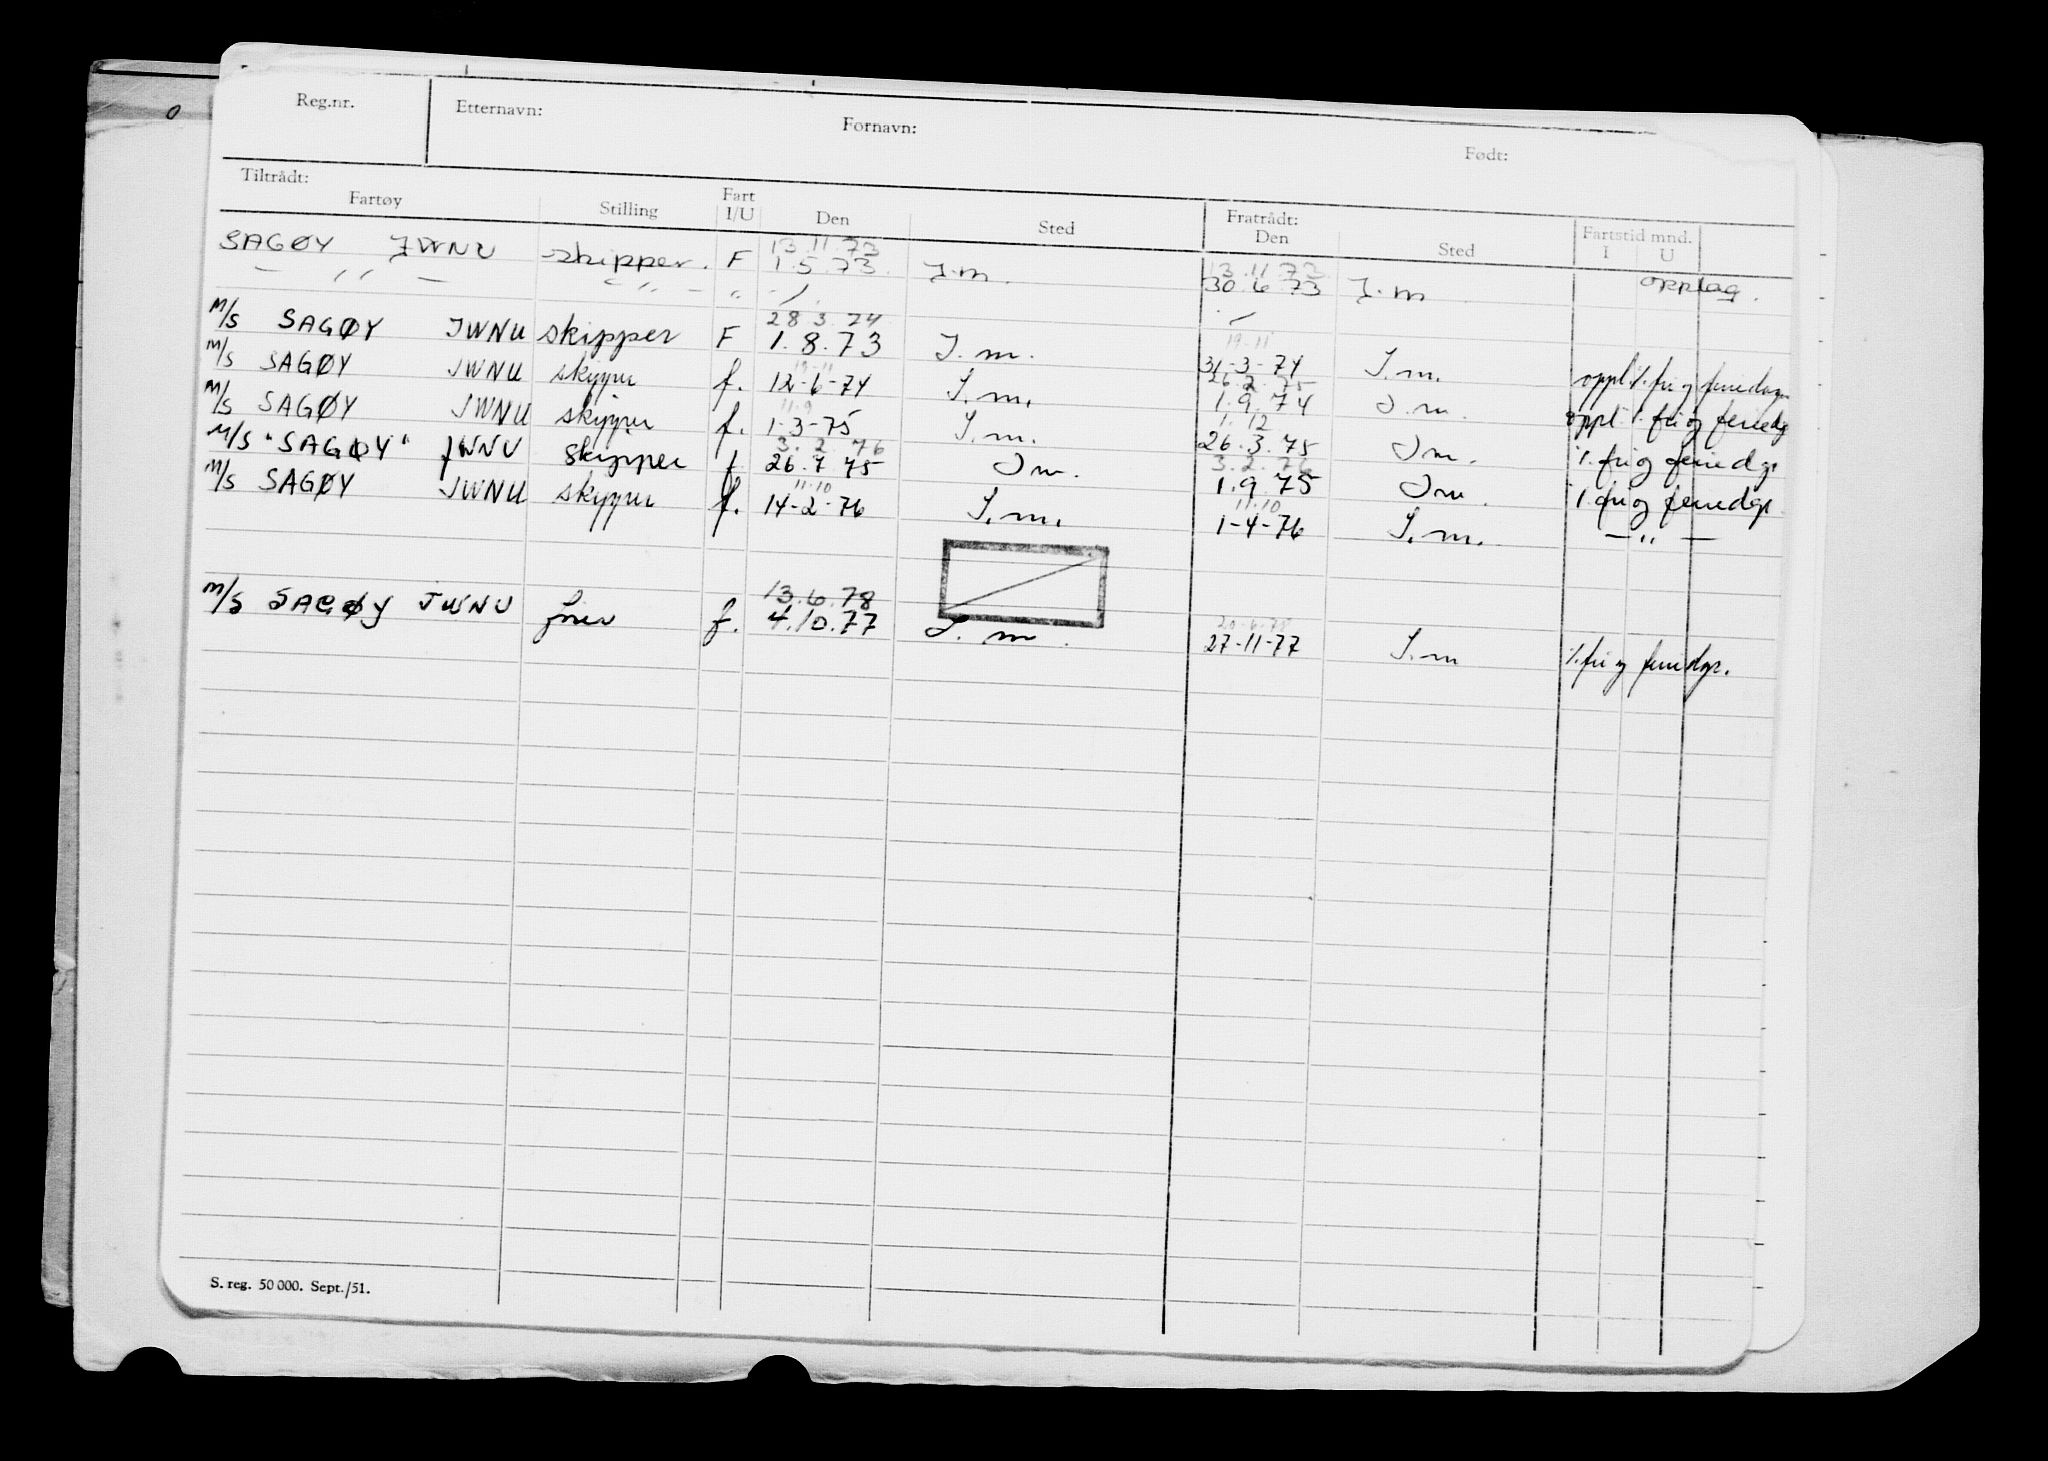 Reg.nr. Etternavn: Fornavn: Født:
Tiltrådt: Fratrådt:
Fartøy Stilling Fart I/U Den Sted Den Sted Fartstid mnd. I U
13.11.73 13.11.73
SAGØY JWNU skipper. F 1.5.73. I.m. 30.6.73 I.m opplag.
— ,, — — ,, — ,,
28.3.74 19-11
M/S SAGØY JWNU skipper F 1.8.73 I.m. 31-3-74 I.m. oppl. ./. fri og feriedager
19-11 26.2.75
M/S SAGØY JWNU skipper f. 12-6-74 I.m. 1.9.74 I.m. oppl ./. fri og feriedg
11.9 1.12
M/S SAGØY JWNU skipper f. 1-3-75 I.m. 26.3.75 I m. ./. fri og feriedgr
3.2.76 3.2.76
M/S "SAGØY" JWNU skipper f 26.4 75 I m. 1.9 75 I m. ./. fri og feriedgr.
11.10 11.10
M/S SAGØY JWNU skipper f. 14-2-76 I.m. 1-4-76 I.m. — ,, —
13.6.78 20-6-78
M/S SAGØY JWNU fører f. 4.10.77 I.m. 27-11-77 I.m ./. fri og feriedgr.
S. reg. 50 000. Sept./51.